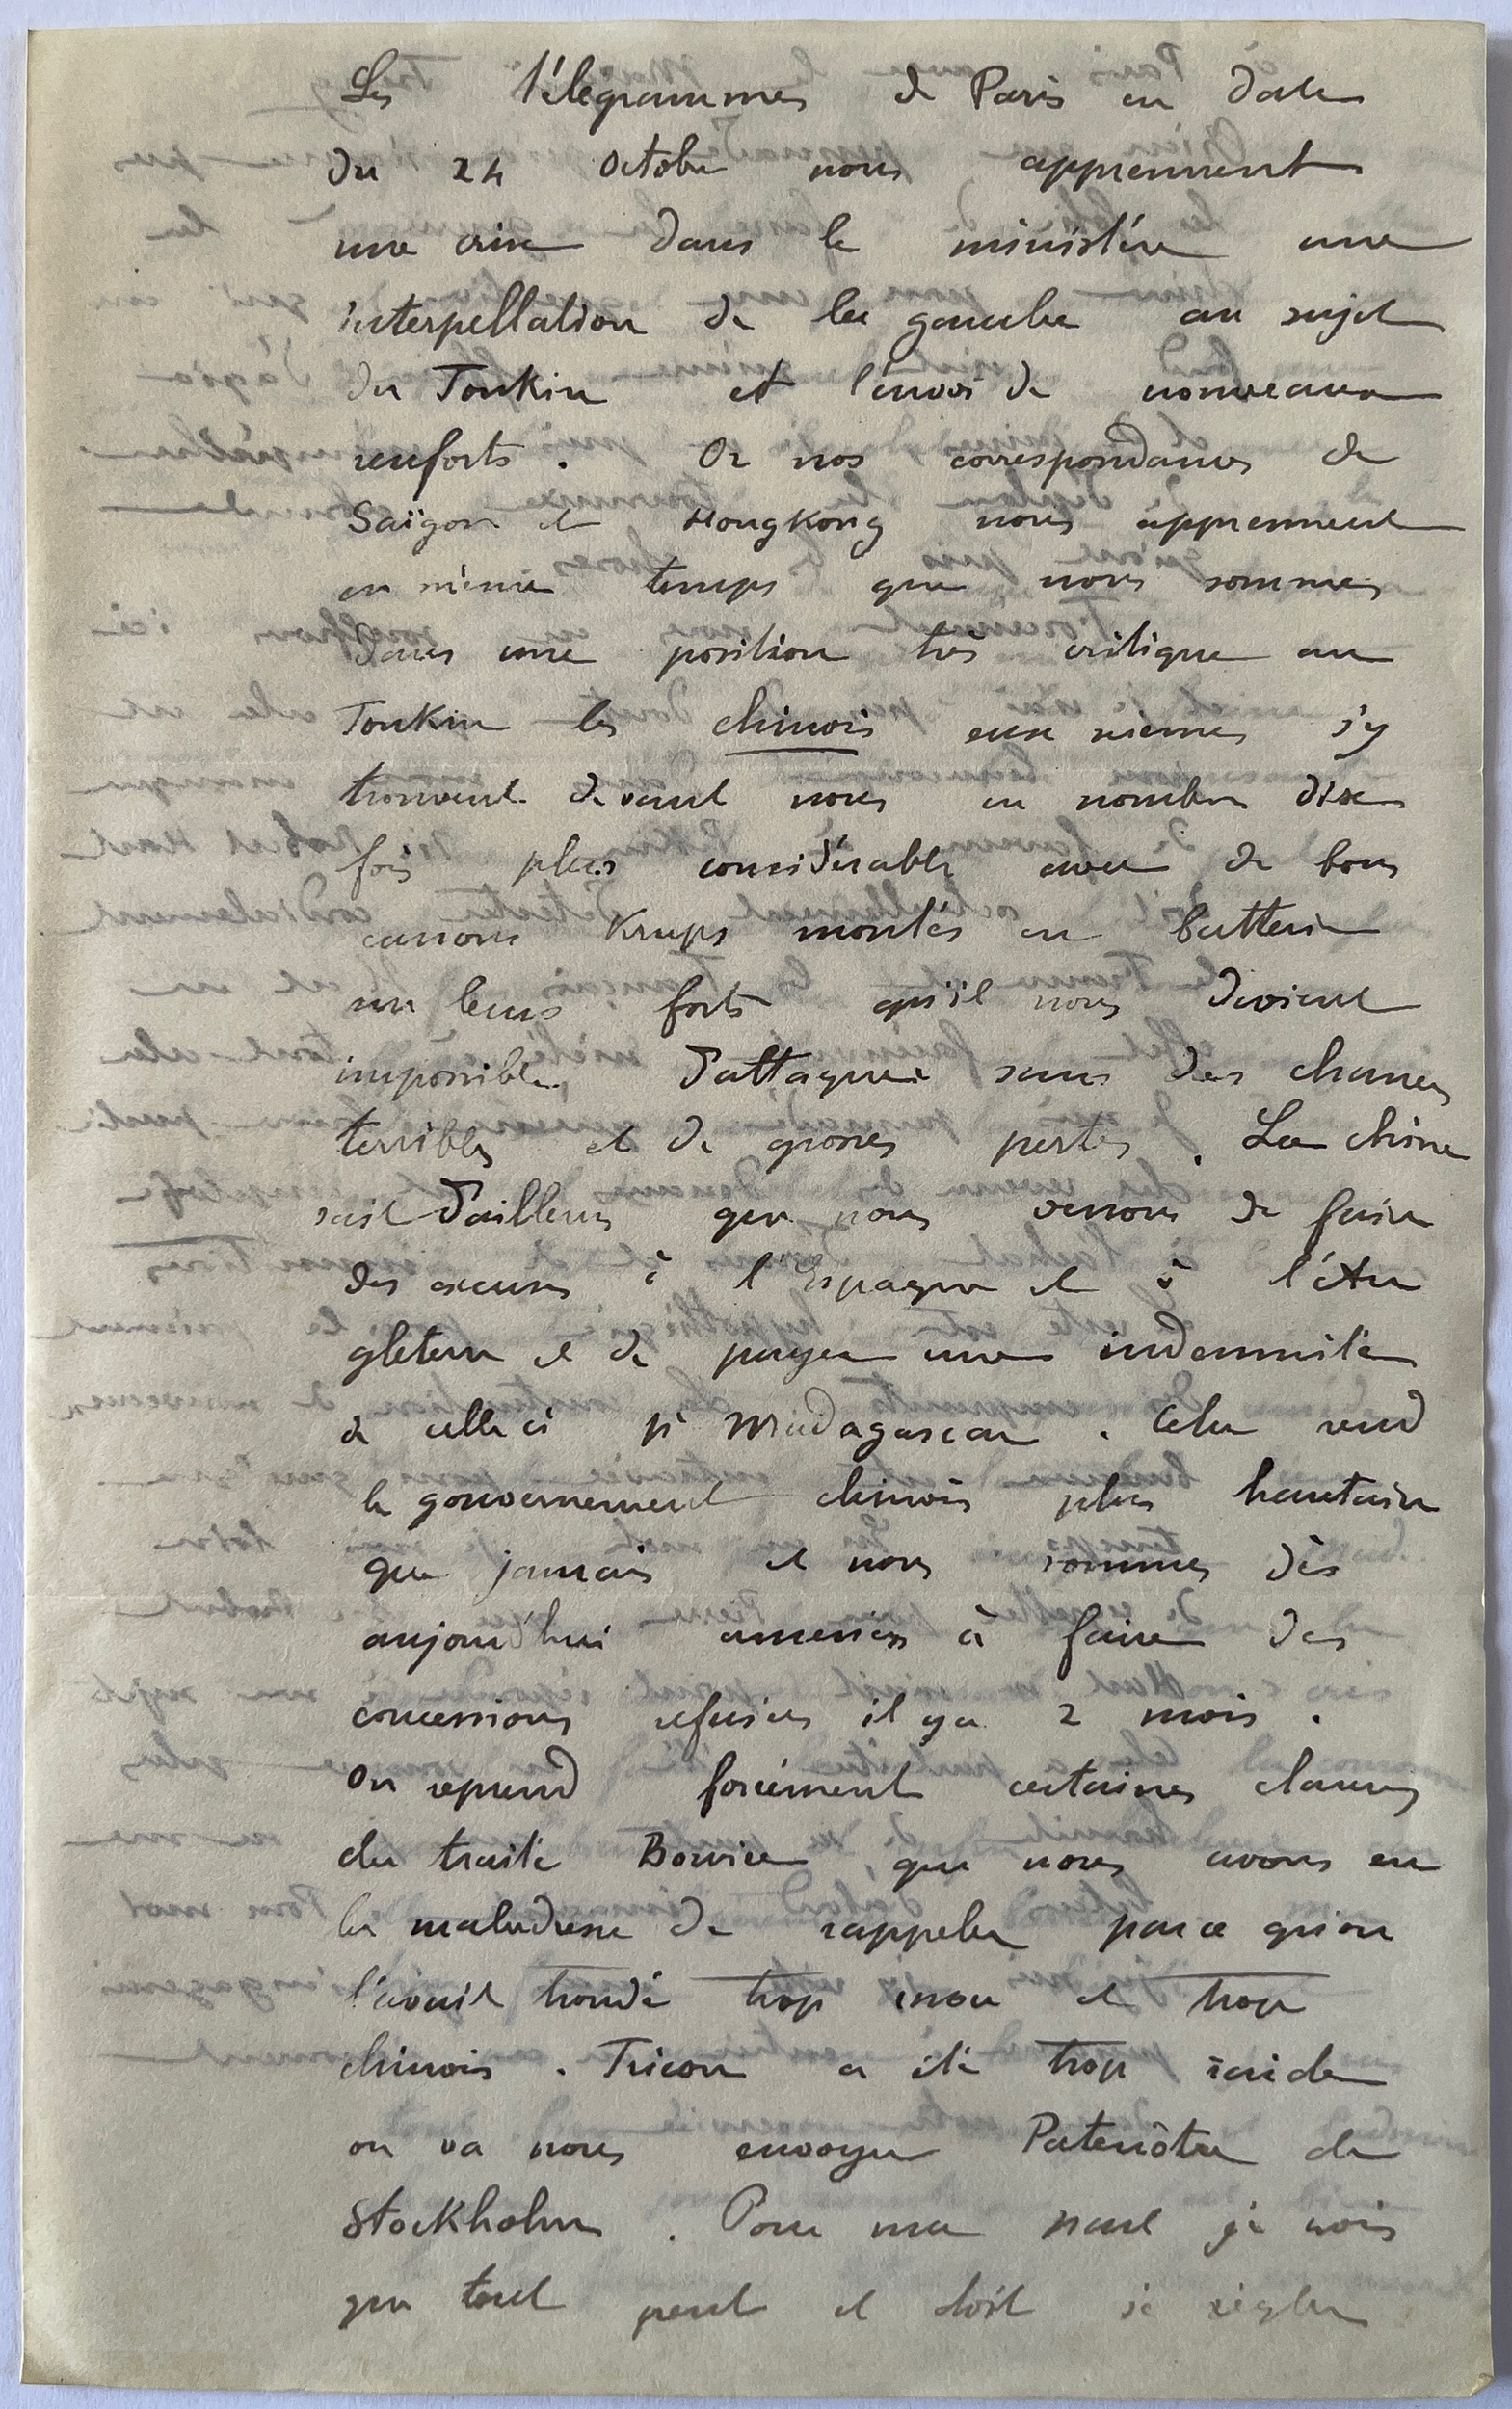 Les télégrammes de Paris en date
du 24 octobre nous apprennent
une crise dans le ministère une
interpellation de la gauche au sujet
du Tonkin et l'envoi de nouveaux
renforts. Or nos correspondances de
Saïgon et Hongkong nous apprennent
en même temps que nous sommes
dans une position très critique au
Tonkin les chinois eux mêmes s'y
trouvent devant nous en nombre dix
fois plus considérable avec de bons
canons Krups montés en batterie
sur leurs forts qu'il nous devient
impossible d'attaquer sans des chances
terribles et de grosses pertes. La chine
sait d'ailleurs que nous venons de faire
des excuses à l'Espagne et à l'An
gleterre et de payer une indemnité
à celle ci pr Madagascar. Cela rend
le gouvernement chinois plus hautain
que jamais et nous sommes dès
aujourd'hui amenés à faire des
concessions refusées il y a 2 mois.
On reprend forcément certaines clauses
du traité Bourée, que nous avons eu
la maladresse de rappeler parce qu'on
l'avait trouvé trop mou et trop
chinois. Tricou a été trop raide
on va nous envoyer Patenôtre de
Stockholm. Pour ma part je crois
que tout peut et doit se régler